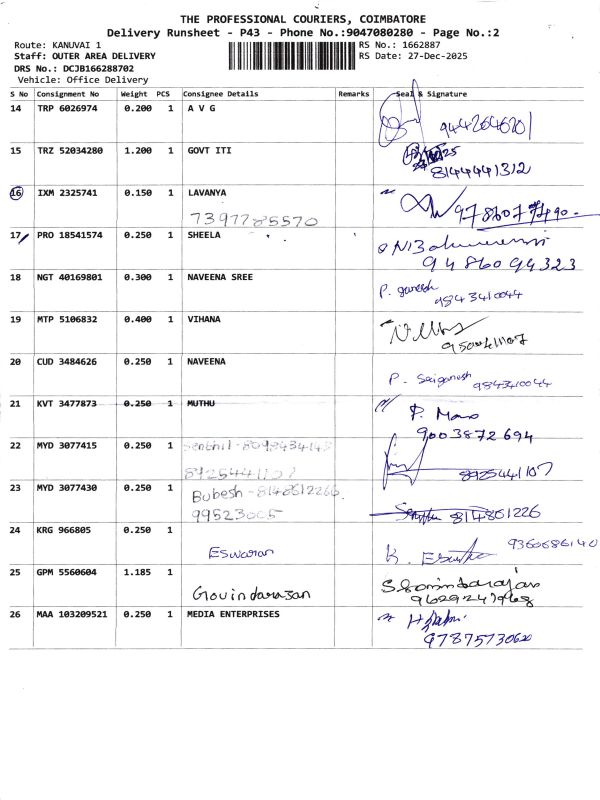 THE PROFESSIONAL COURIERS, COIMBATORE
Delivery Runsheet - P43 - Phone No.:9047080280 - Page No.:2
Route: KANUVAI 1 RS No.: 1662887
Staff: OUTER AREA DELIVERY RS Date: 27-Dec-2025
DRS No.: DCJB166288702
Vehicle: Office Delivery
S No Consignment No Weight PCS Consignee Details Remarks Seal & Signature
14 TRP 6026974 0.200 1 A V G
9442646201
15 TRZ 52034280 1.200 1 GOVT ITI
8144441312
16 IXM 2325741 0.150 1 LAVANYA
7397785570
17 PRO 18541574 0.250 1 SHEELA
9486094323
18 NGT 40169801 0.300 1 NAVEENA SREE P. ganesh
9843410044
19 MTP 5106832 0.400 1 VIHANA
9500041107
20 CUD 3484626 0.250 1 NAVEENA
P. Saiganesh 9843410044
21 KVT 3477873 0.250 1 MUTHU P. Mano
9003872694
22 MYD 3077415 0.250 1 Senthil
8925441107 8925441107
23 MYD 3077430 0.250 1 Bubesh - 8148612266
99523005 814861226
24 KRG 966805 0.250 1
Eswaran 9360686140
25 GPM 5560604 1.185 1
Govindarasan 9629247968
26 MAA 103209521 0.250 1 MEDIA ENTERPRISES
9787573062